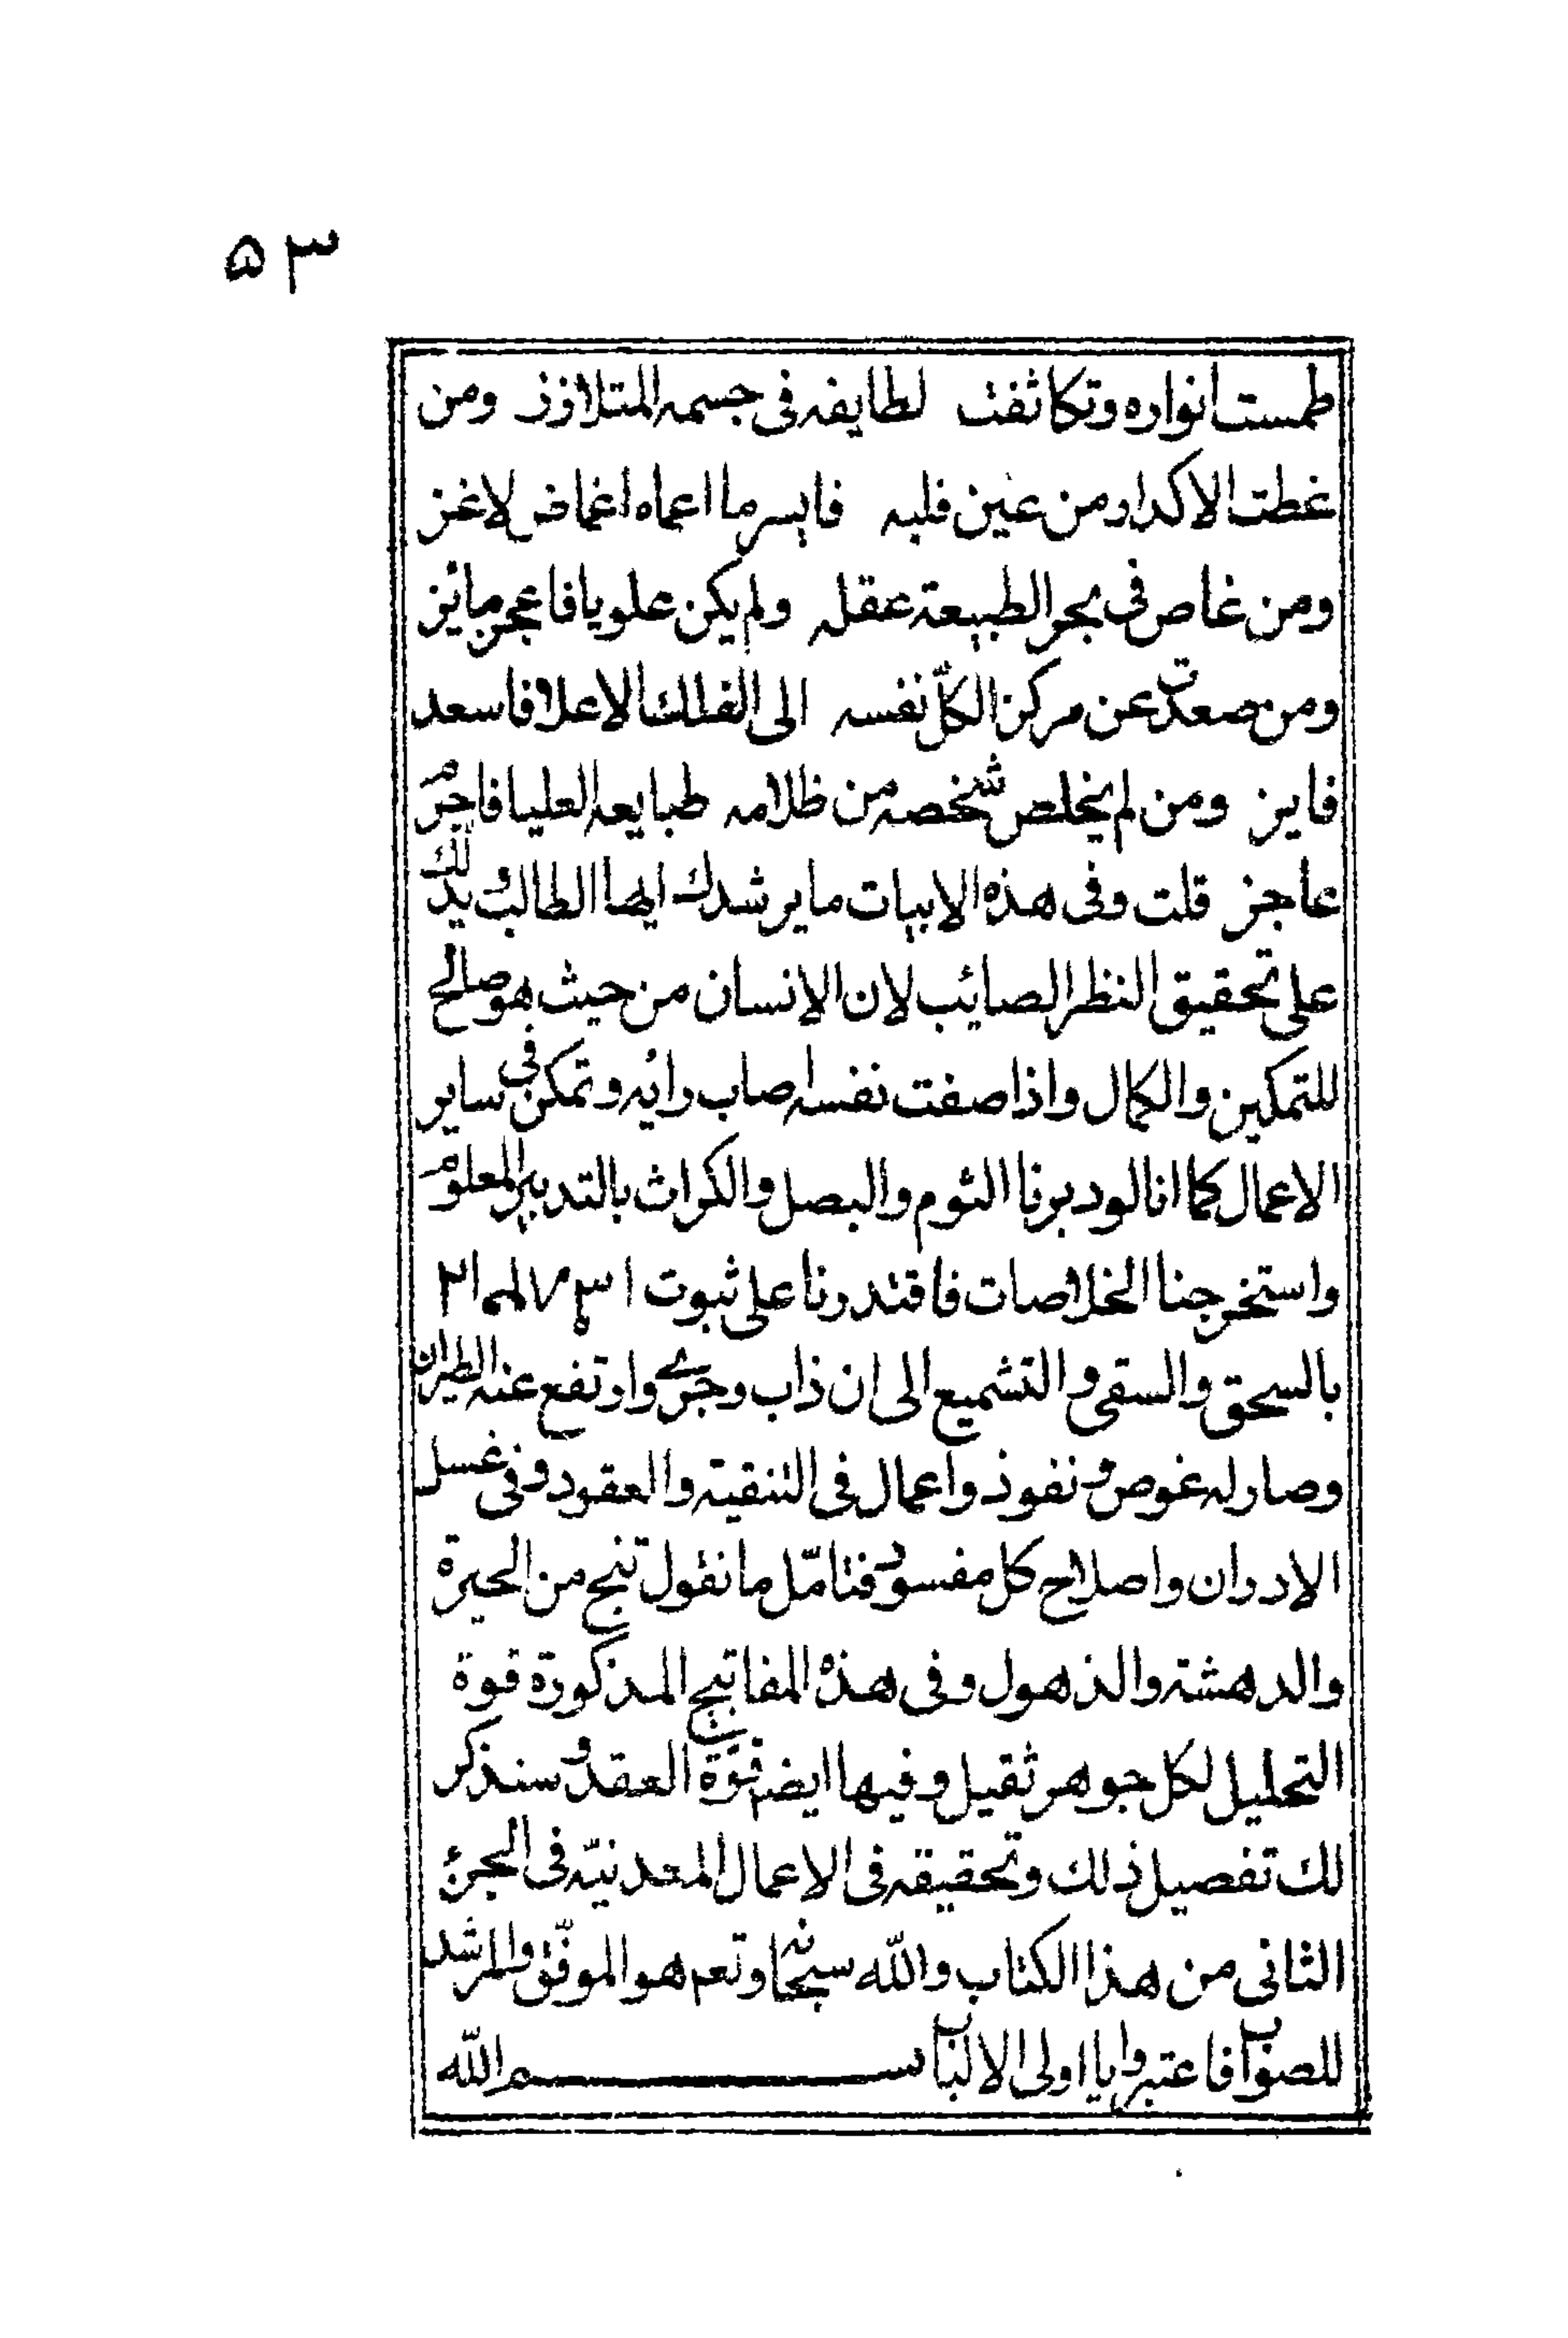 ۵۳
طمست انواره وتكاثفت لطايفه فى جسمه المتلازز ومن
غطت الاكدار من عين قلبه فايسر ما اعماه اغماض لاغز
ومن غاص فى بحر الطبيعة عقله ولم يكن علويا فاعجز مائز
ومن صعدت عن مركز الكلّ نفسه الى الفلك الاعلا فاسعد
فايز ومن لم يخلص شخصه من ظلامه طبايعه العليا فاجرم
عاجز قلت وفى هذه الابيات ما يرشدك ايها الطالب ويدلك
على تحقيق النظر الصائب لان الانسان من حيث هو صالح
للتمكين والكمال واذا صفت نفسه اصاب رائه وتمكن فى ساير
الاعمال كما انا لو دبرنا الثوم والبصل والكراث بالتدبير المعلوم
واستخرجنا الخلاصات فاقتدرنا على ثبوت
بالسحق والسقى والتشميع الى ان ذاب وجرے وارتفع عنه الطيران
وصار له غوص ونفوذ واعمال فى التنقية والعقود وفى غسل
الادران واصلاح كل مفسود فتامّل ما نقول تنج من الحيرة
والدهشة والذهول وفى هذه المفاتيح المذكورة قوة
التحليل لكل جوهر ثقيل وفيها ايضم قوّة العقد وسنذكر
لك تفصيل ذلك وتحقيقه فى الاعمال المعدنيّه فى الجزئ
الثانى من هذا الكتاب والله سبحانه وتعم هو الموفّق والمرشد
للصواب فاعتبروا يا اولى الالباب بسم الله